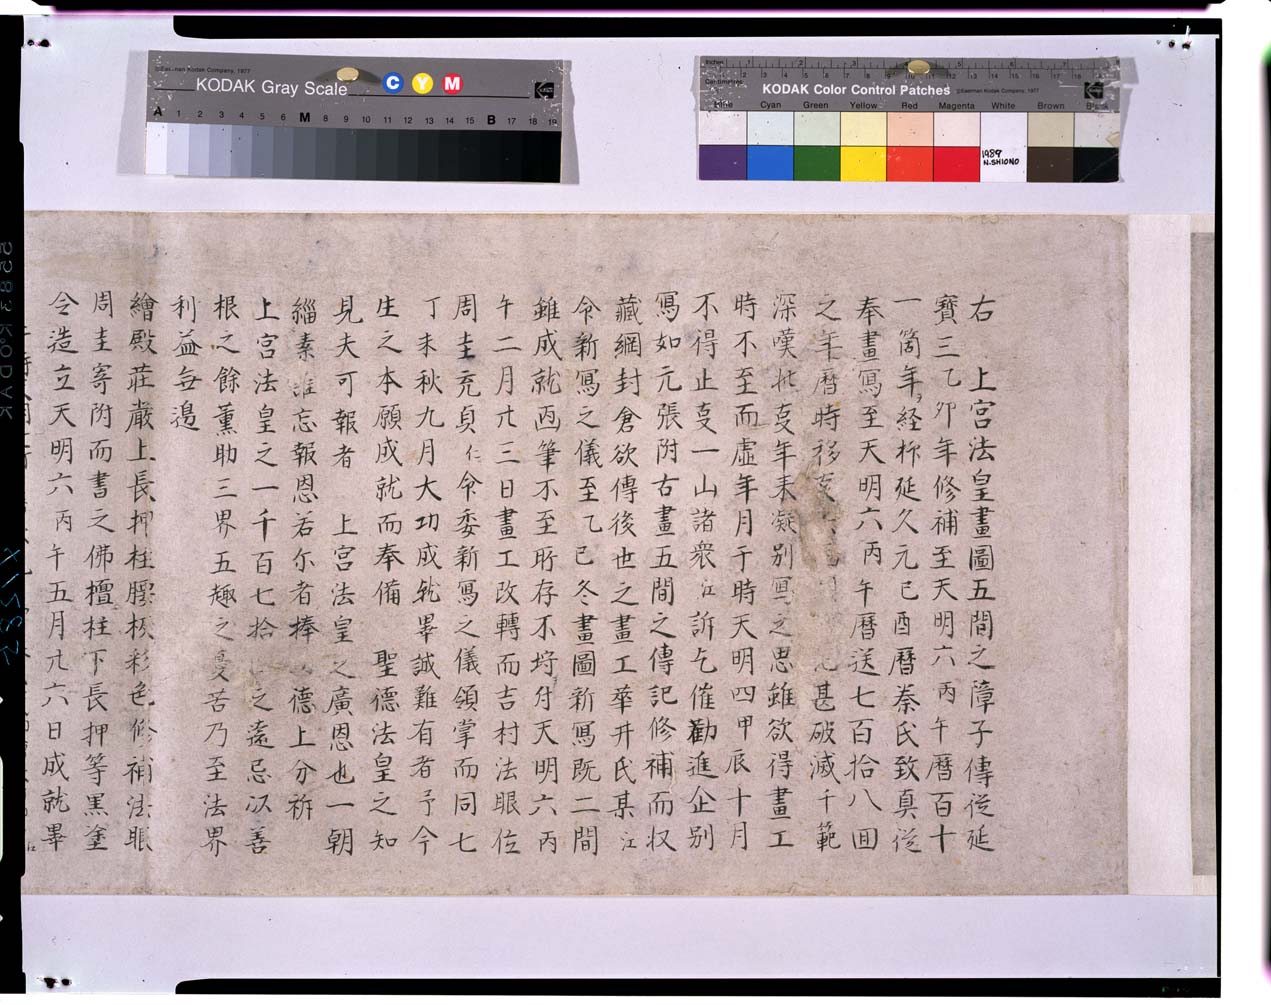 ©Eastman Kodak Company, 1977
KODAK Gray Scale
C Y M
A 1 2 3 4 5 6 M 8 9 10 11 12 13 14 15 B 17 18 19
Inches 1 2 3 4 5 6 7 8
Centimetres 2 3 4 5 6 7 8 9 10 11 12 13 14 15 16 17 18 19
KODAK Color Control Patches ©Eastman Kodak Company, 1977
Blue Cyan Green Yellow Red Magenta White Brown Black
1989
N.SHIONO
右 上宮法皇畫圖五間之障子傳従延
寳三乙夘年修補至天明六丙午暦百十
一箇年経祚延久元己酉暦秦氏致真従
奉畫冩至天明六丙午暦送七百拾八囬
之年暦時移 甚破滅千範
深嘆 年来凝別冩之思雖欲得畫工
時不至而虚年月于時天明四甲辰十月
不得止㕝一山諸衆江訴乞催勸進企别
冩如元張附古畫五間之傳記修補而収
藏綱封倉欲傳後世之畫工華井氏某江
令新冩之儀至乙巳冬畫圖新冩既二間
雖成就画筆不至所存不 天明六丙
午二月廾三日畫工改轉而吉村法眼位
周圭充貞仁令委新冩之儀領掌而同七
丁未秋九月大功成就畢誠難有者予今
生之本願成就而奉備 聖德法皇之知
見夫可報者 上宮法皇之廣恩也一朝
緇素誰忘報恩若尓者捧 德上分祚
上宮法皇之一千百七拾 之遠忌以善
根之餘薫助三界五趣之憂苦乃至法界
利益無邉
繪殿莊嚴上長押柱腰板彩色修補法眼
周圭寄附而書之佛檀柱下長押等黒塗
令造立天明六丙午五月廾六日成就畢